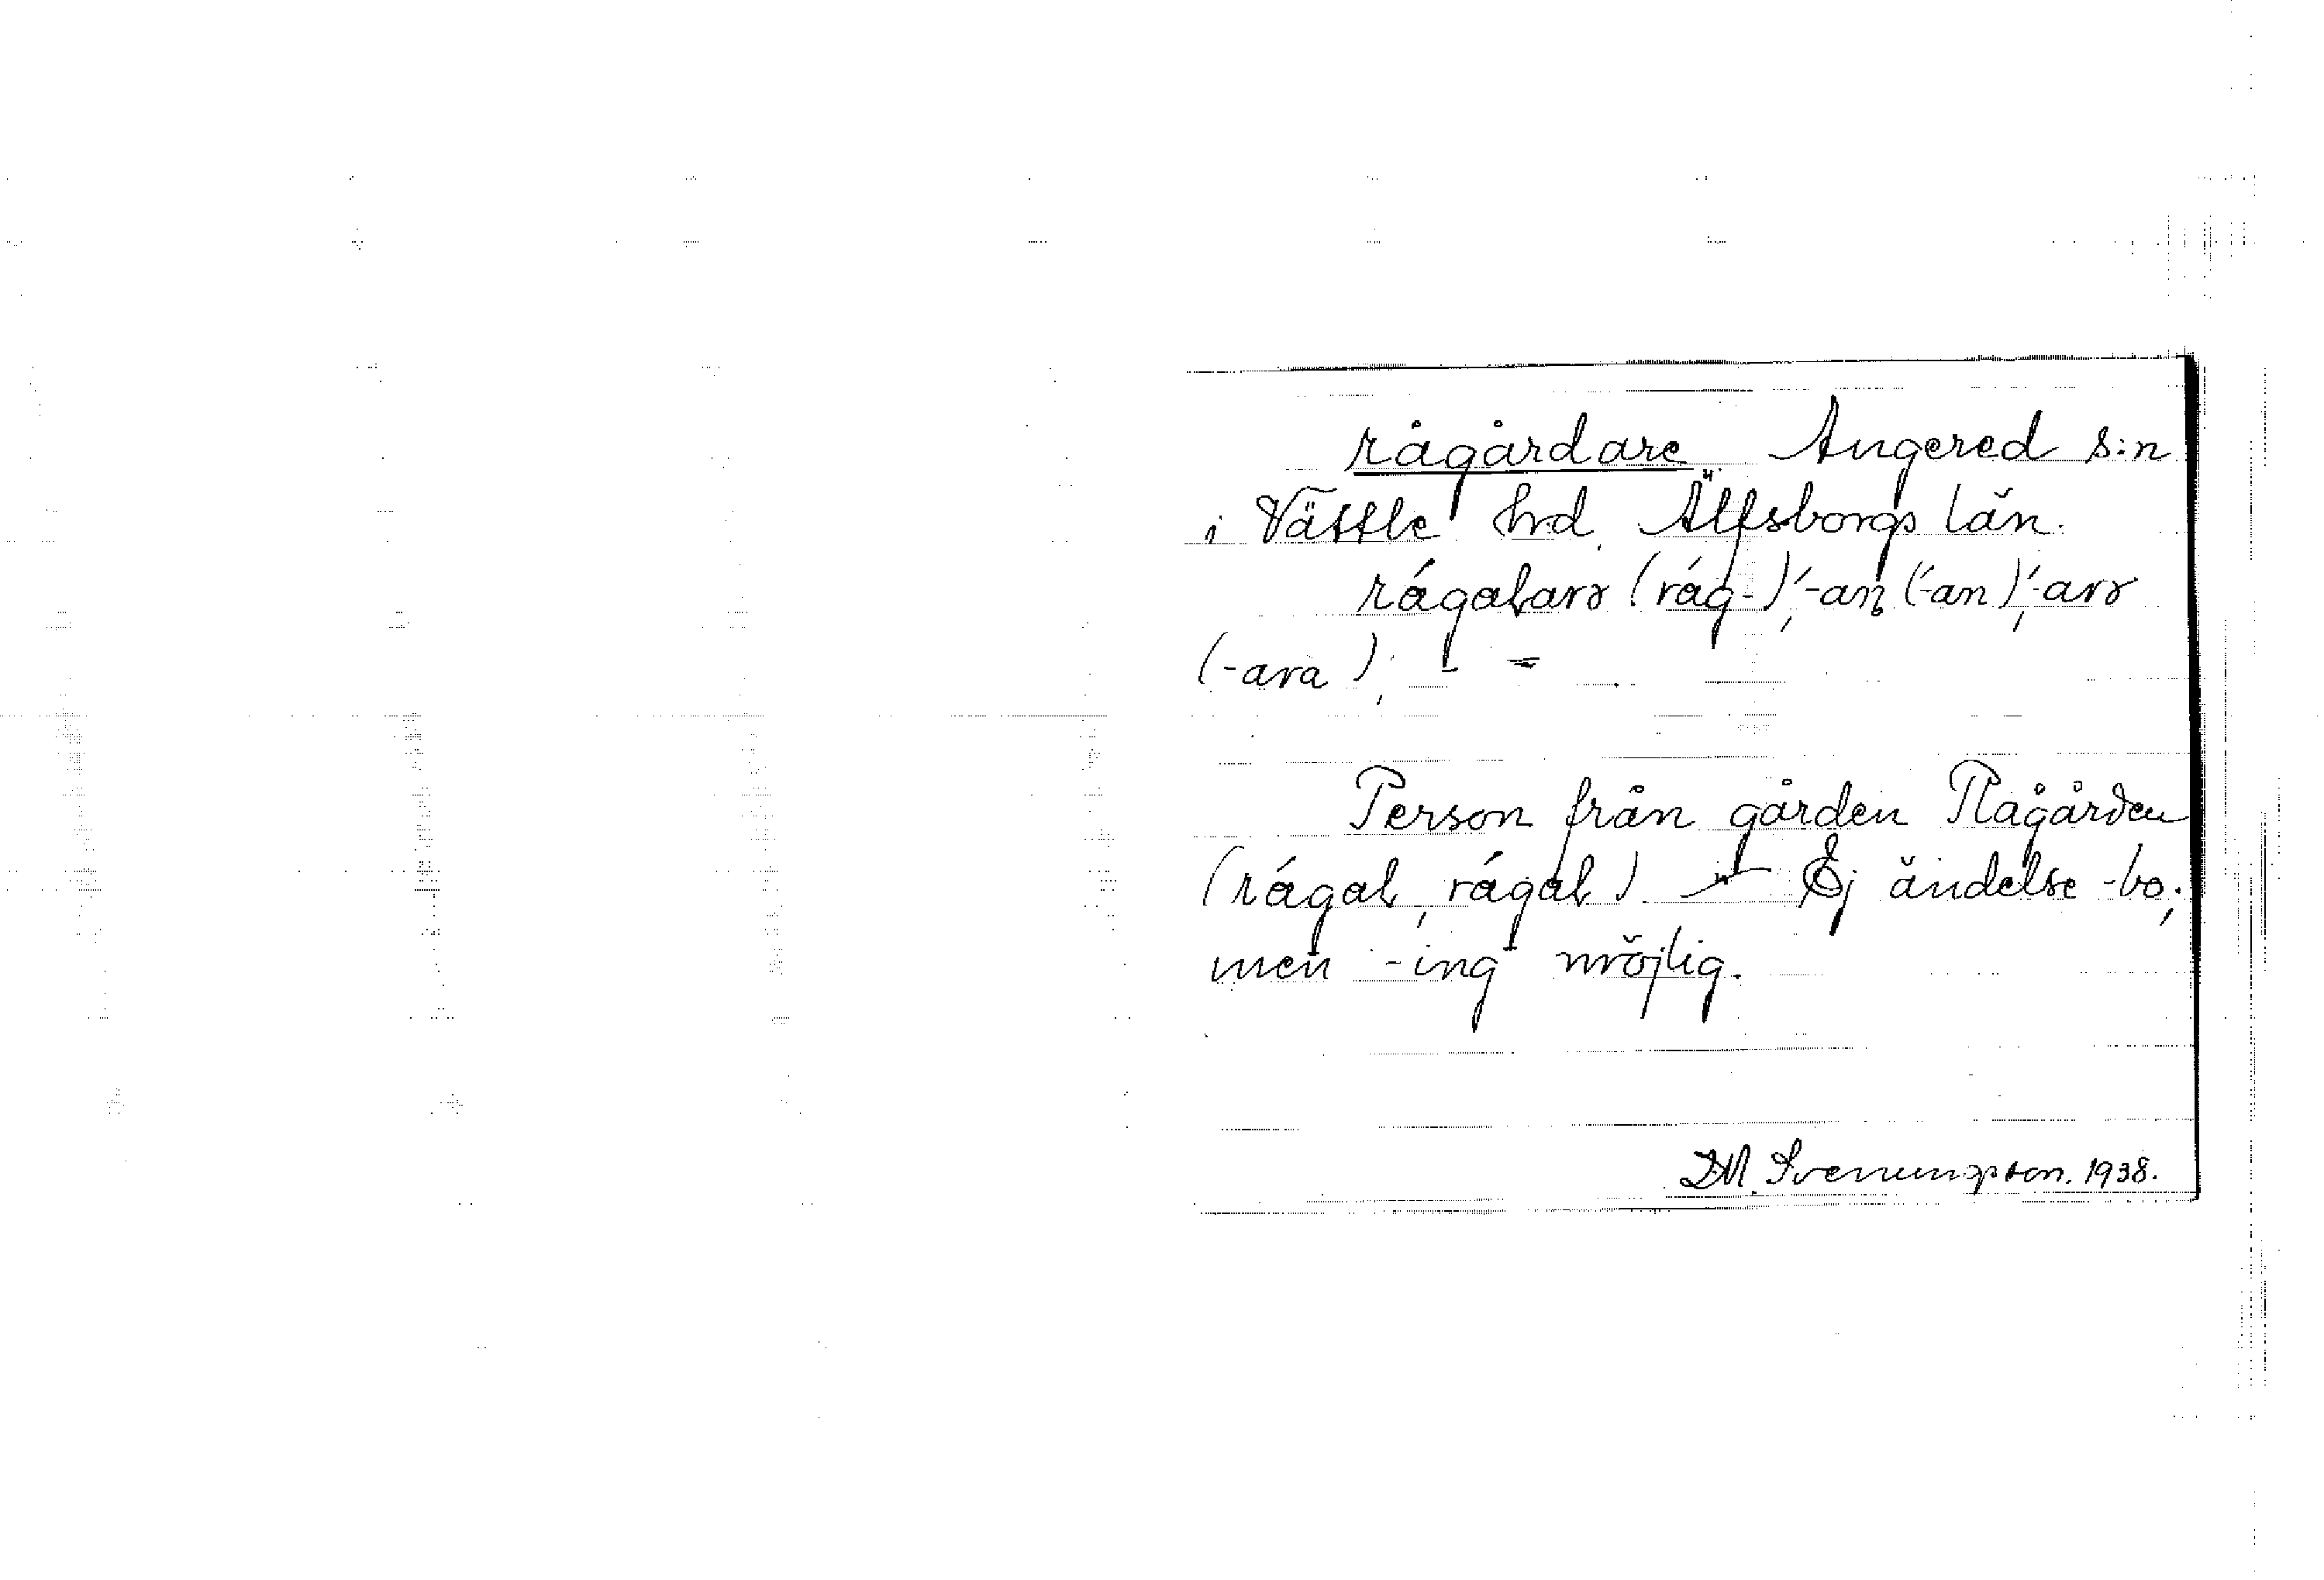 rågårdare Angered s:n
i Vättle hrd. Älfsborgs län.
rågaɫarə (råg-), -an̥ (-an), -arə
(-ara),
Person från gården Rågården
(rågaɫ, rågaɫ) Ej ändelse -bo;
men -ing möjlig.
D.M. Svenungsson. 1938.